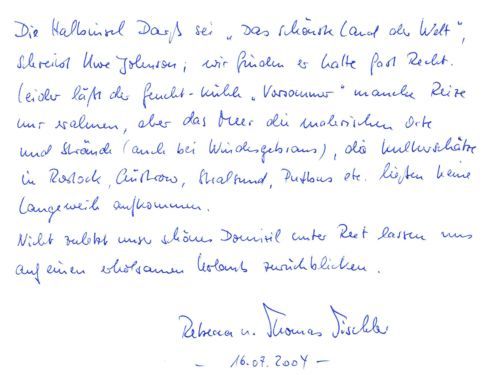 Die Halbinsel Darß sei „Das schönste Land der Welt",
schreibt Uwe Johnson; wir finden er hatte fast Recht.
Leider läßt der feucht-kühle „Vorsommer" manche Reize
nur erahnen, aber das Meer die malerischen Orte
und Strände (auch bei Windesgebraus), die Kulturschätze
in Rostock, Güstrow, Stralsund, Putbus etc. ließen keine
Langeweile aufkommen.
Nicht zuletzt unser schönes Domizil unter Reet lassen uns
auf einen erholsamen Urlaub zurückblicken.
Rebecca u. Thomas Tischler
- 16.07.2004 -